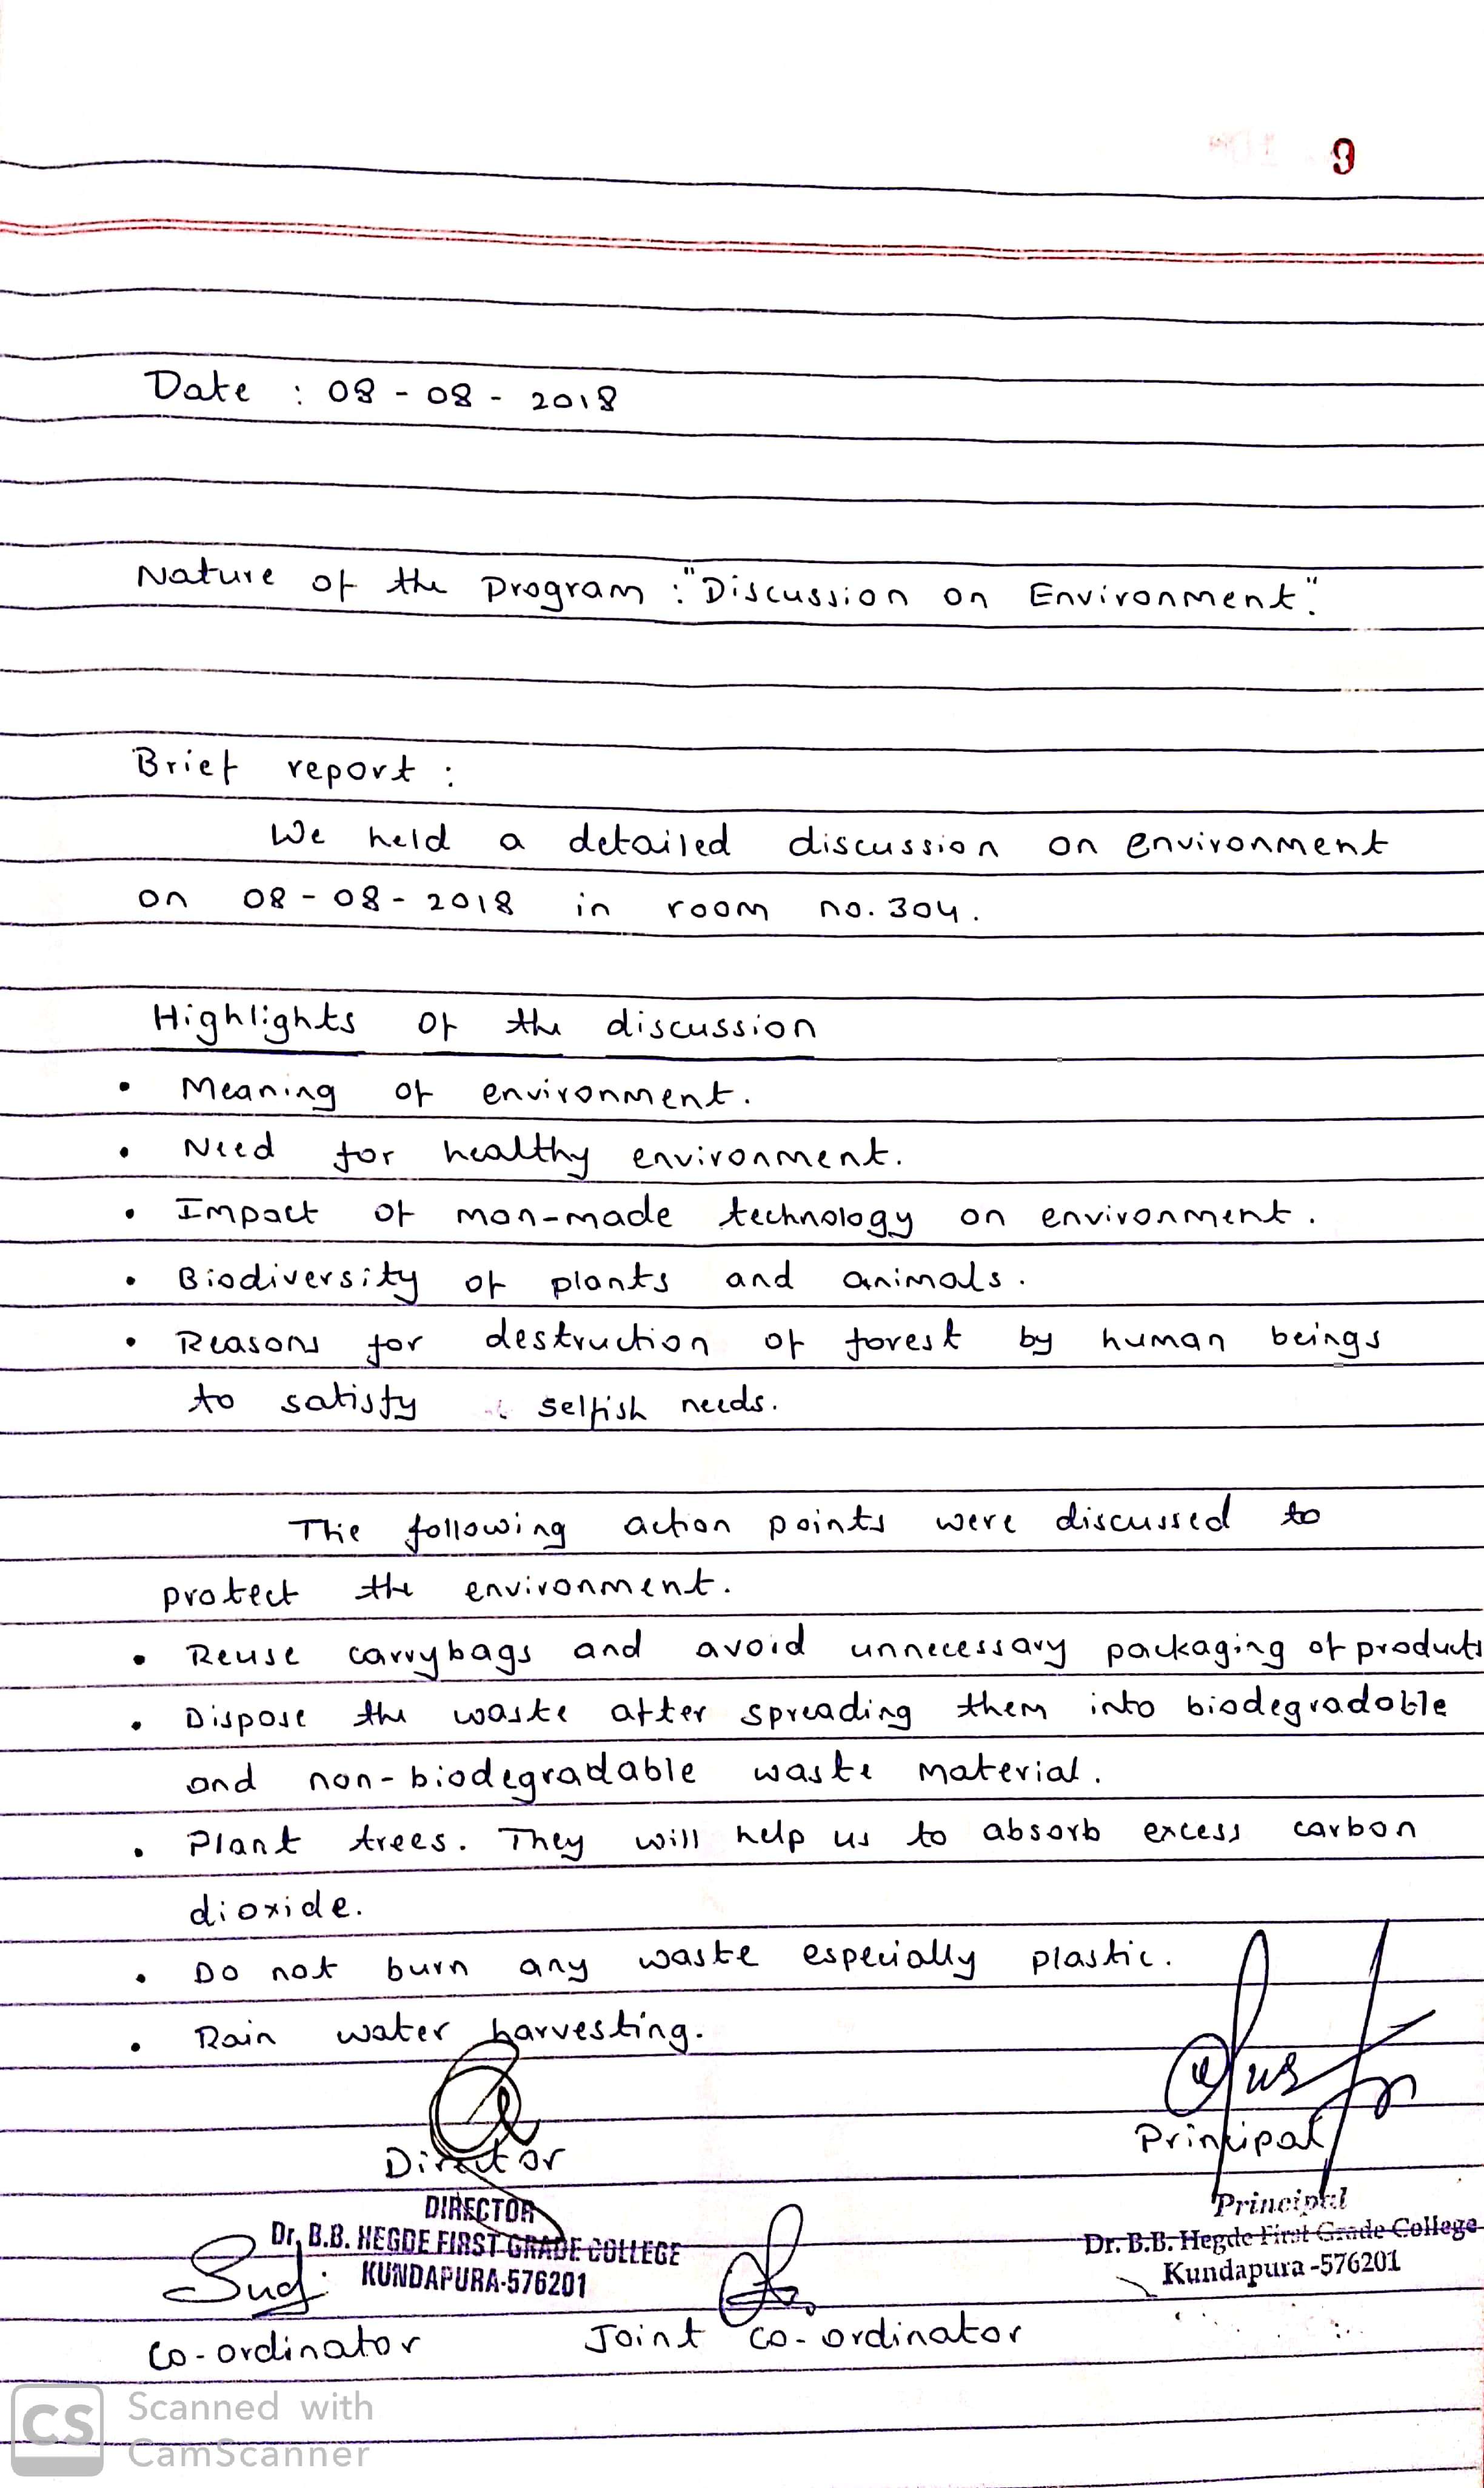 9
Date : 08 - 08 - 2018
Nature of the program : "Discussion on Environment".
Brief report :
We held a detailed discussion on environment
on 08 - 08 - 2018 in room no. 304.
Highlights of the discussion
• Meaning of environment.
• Need for healthy environment.
• Impact of man-made technology on environment.
• Biodiversity of plants and animals.
• Reasons for destruction of forest by human beings
to satisfy selfish needs.
The following action points were discussed to
protect the environment.
• Reuse carrybags and avoid unnecessary packaging of products
• Dispose the waste after spreading them into biodegradable
and non-biodegradable waste material.
• Plant trees. They will help us to absorb excess carbon
dioxide.
• Do not burn any waste especially plastic.
• Rain water harvesting.
Director
Principal
DIRECTOR
Dr. B.B. HEGDE FIRST GRADE COLLEGE
KUNDAPURA-576201
Principal
Dr. B.B. Hegde First Grade College
Kundapura -576201
Co-ordinator
Joint Co-ordinator
CS Scanned with
CamScanner